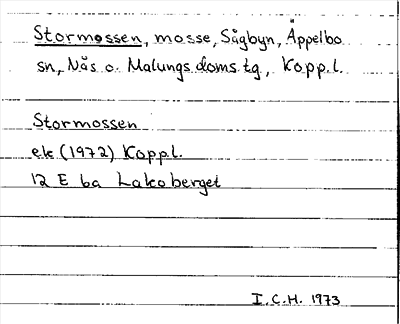 Stormossen, mosse, Sågbyn, Äppelbo
sn, Nås o. Malungs doms.tg, Kopp.l.
Stormossen
ek (1972) Kopp.l.
12 E ba Lakoberget
I.C.H. 1973